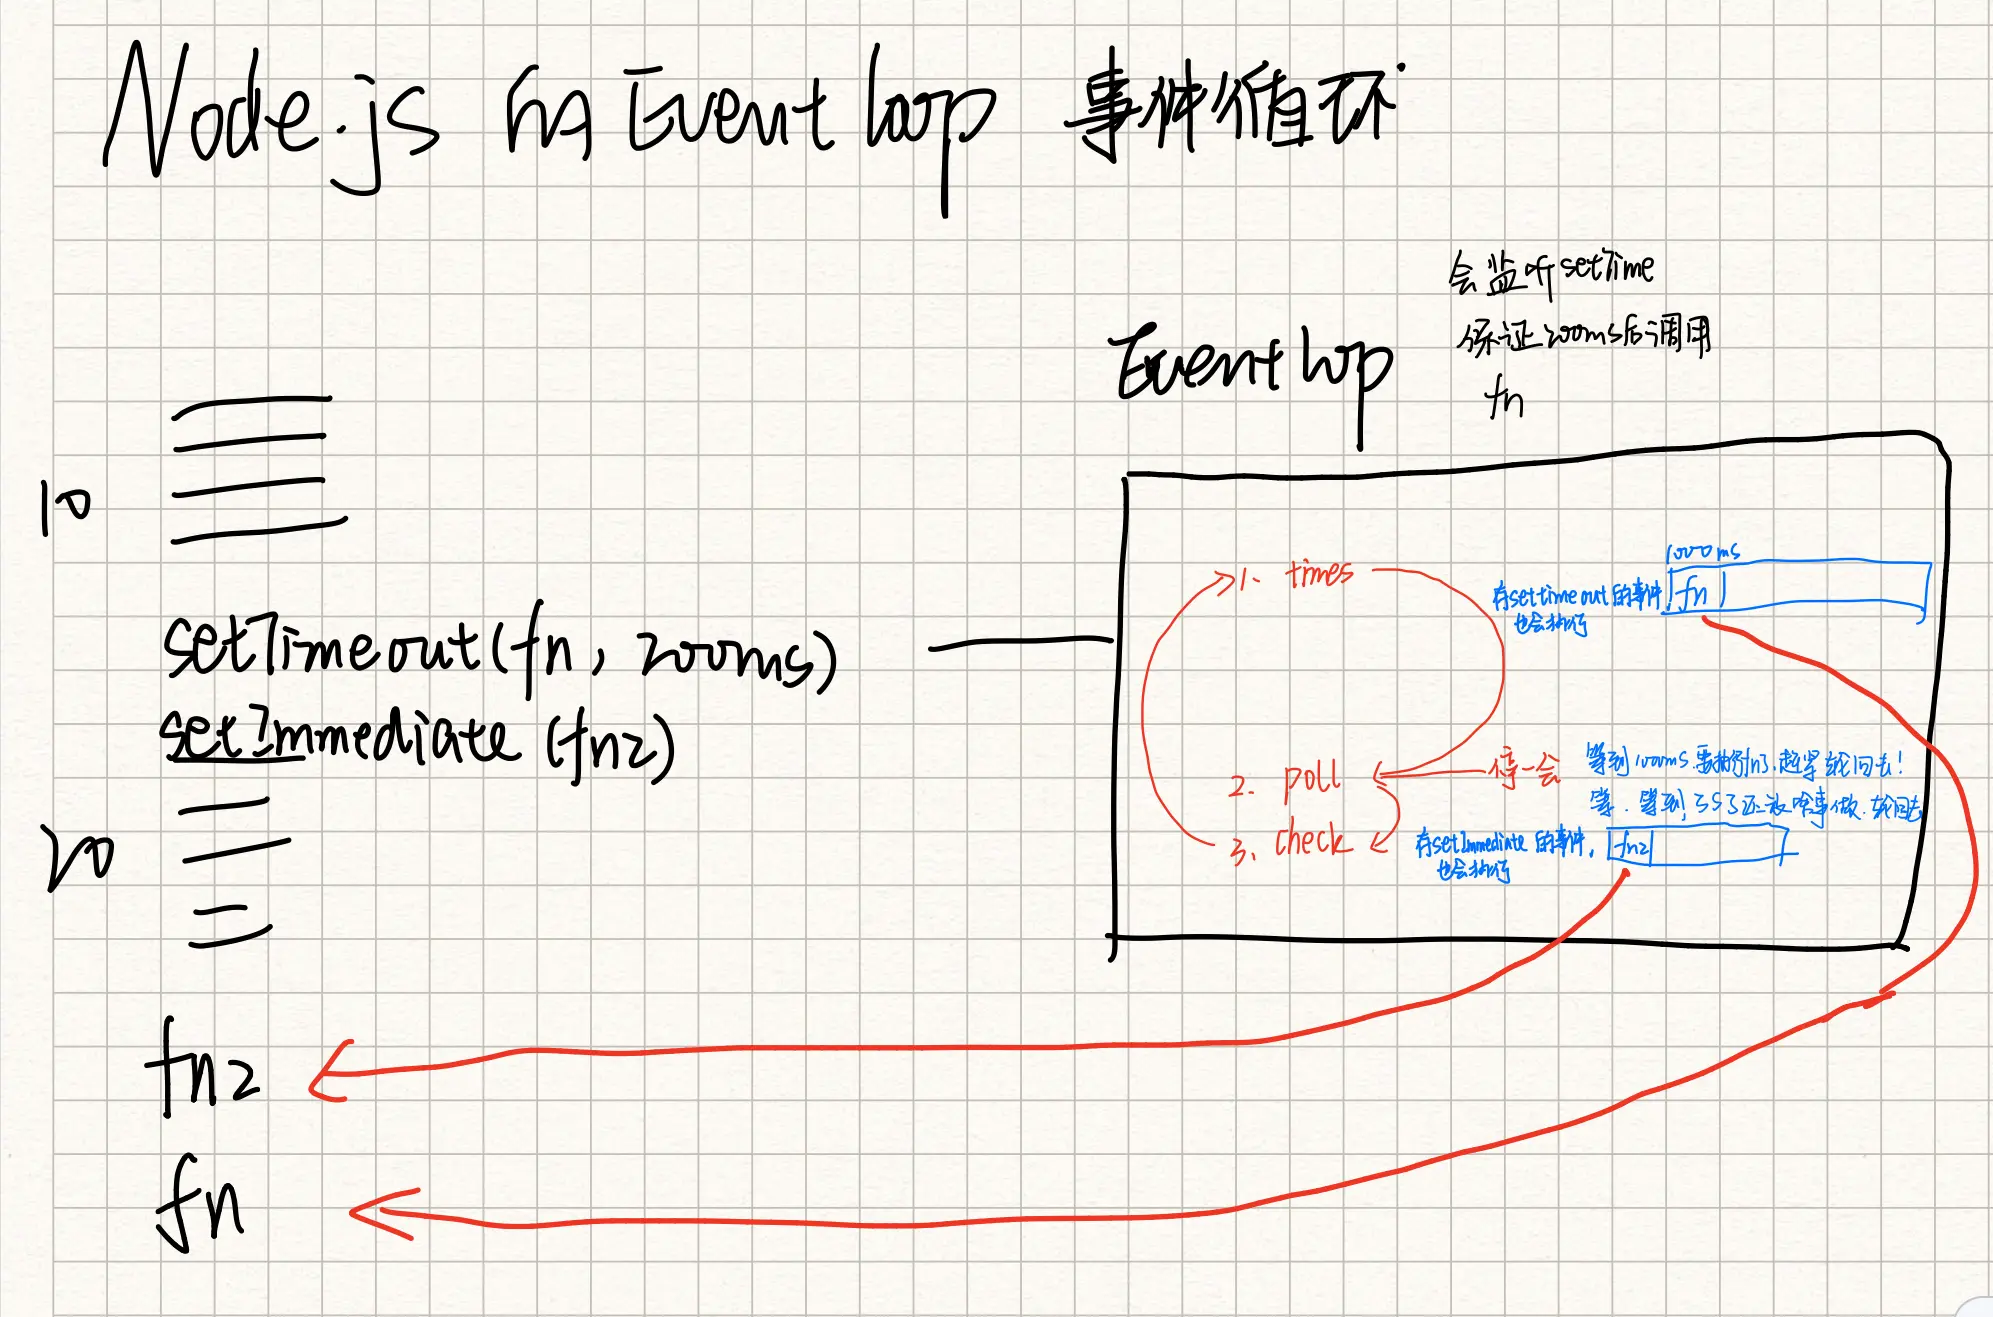 Node.js 的 Event Loop 事件循环
会监听 setTime
保证 200ms后调用
fn
Event loop
10
setTimeout(fn, 200ms)
setImmediate (fn2)
20
fn2
fn
1. times
存settimeout的事件
也会执行
1000ms
fn
2. poll
停一会
等到1000ms.要执行fn了.赶紧轮回去!
等.等到3S了还没啥事做.轮回去
3. check
存setImmediate的事件,
也会执行
fn2